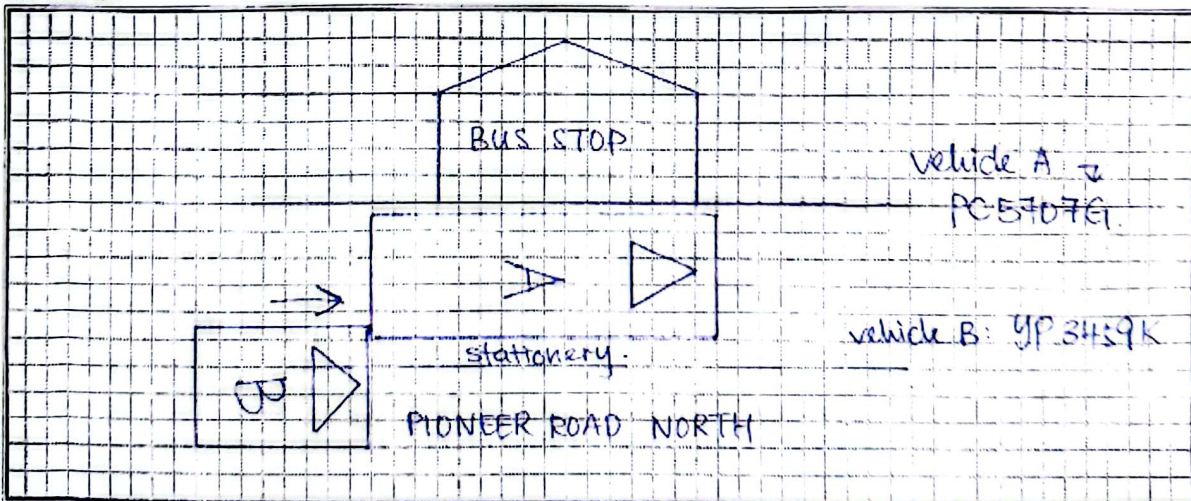 BUS STOP
vehicle A
PC5707G.
A
stationery.
vehicle B: YP3459K
B
PIONEER ROAD NORTH